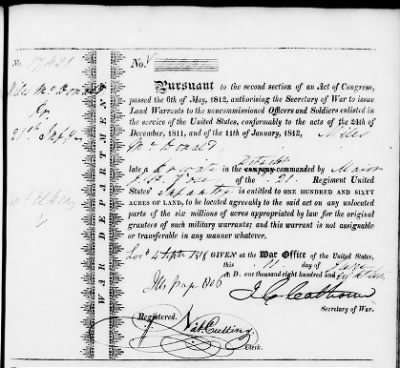 No.
No.
Pursuant to the second section of an Act of Congress,
passed the 6th of May, 1812, authorising the Secretary of War to issue
Land Warrants to the noncommissioned Officers and Soldiers enlisted in
the service of the United States, conformably to the acts of the 24th of
December, 1811, and of the 11th of January, 1812, Miles
McDonald
late a Private in the company commanded by Major
of the 21 Regiment United
States' Infantry is entitled to ONE HUNDRED AND SIXTY
ACRES OF LAND, to be located agreeably to the said act on any unlocated
parts of the six millions of acres appropriated by law for the original
grantees of such military warrants; and this warrant is not assignable
or transferable in any manner whatever.
GIVEN at the War Office of the United States,
this 11 day of
A. D. one thousand eight hundred and
J C Calhoun
Secretary of War.
Registered.
Nat. Cutting.
Clerk.
WAR DEPARTMENT
Miles McDonald
21st